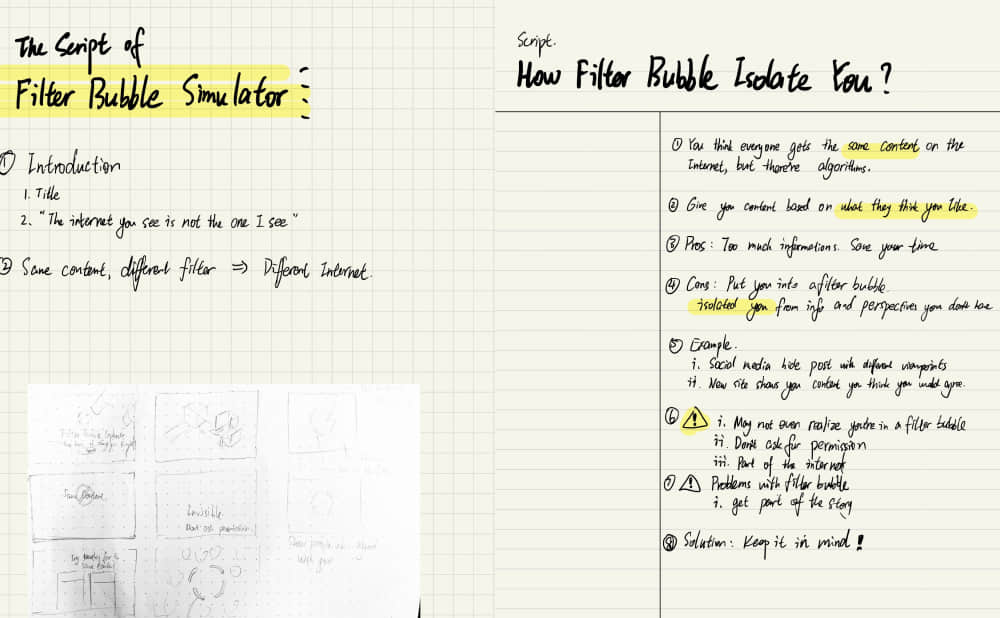 The Script of
Filter Bubble Simulator
① Introduction
1. Title
2. "The internet you see is not the one I see"
② Same content, different filter ⇒ Different Internet.
Same Content
Invisible
Don't ask permission
Script.
How Filter Bubble Isolate You?
① You think everyone gets the same content on the
Internet, but there're algorithms.
② Give you content based on what they think you like.
③ Pros: Too much informations. Save your time
④ Cons: Put you into a filter bubble.
isolated you from info and perspectives you don't have
⑤ Example.
i. Social media hide post with different viewpoints
ii. New site shows you content you think you would agree.
⑥ ⚠ i. May not even realize you're in a filter bubble
ii. Don't ask for permission
iii. Part of the internet
⑦ ⚠ Problems with filter bubble
i. get part of the story
⑧ Solution: Keep it in mind!